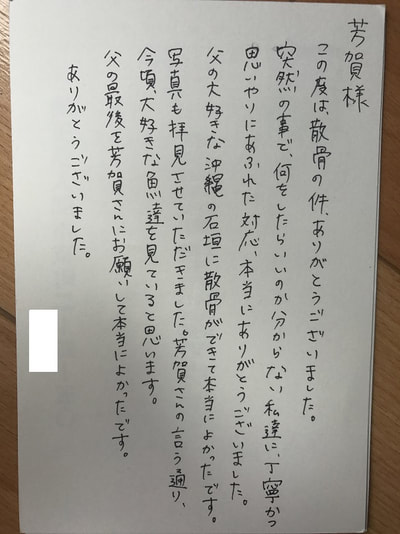 芳賀様
この度は、散骨の件、ありがとうございました。
突然の事で、何をしたらいいのか分からない私達に、丁寧かつ
思いやりにあふれた対応、本当にありがとうございました。
父の大好きな沖縄の石垣に散骨ができて本当によかったです。
写真も拝見させていただきました。芳賀さんの言う通り、
今頃、大好きな魚達を見ていると思います。
父の最後を芳賀さんにお願いして本当によかったです。
ありがとうございました。